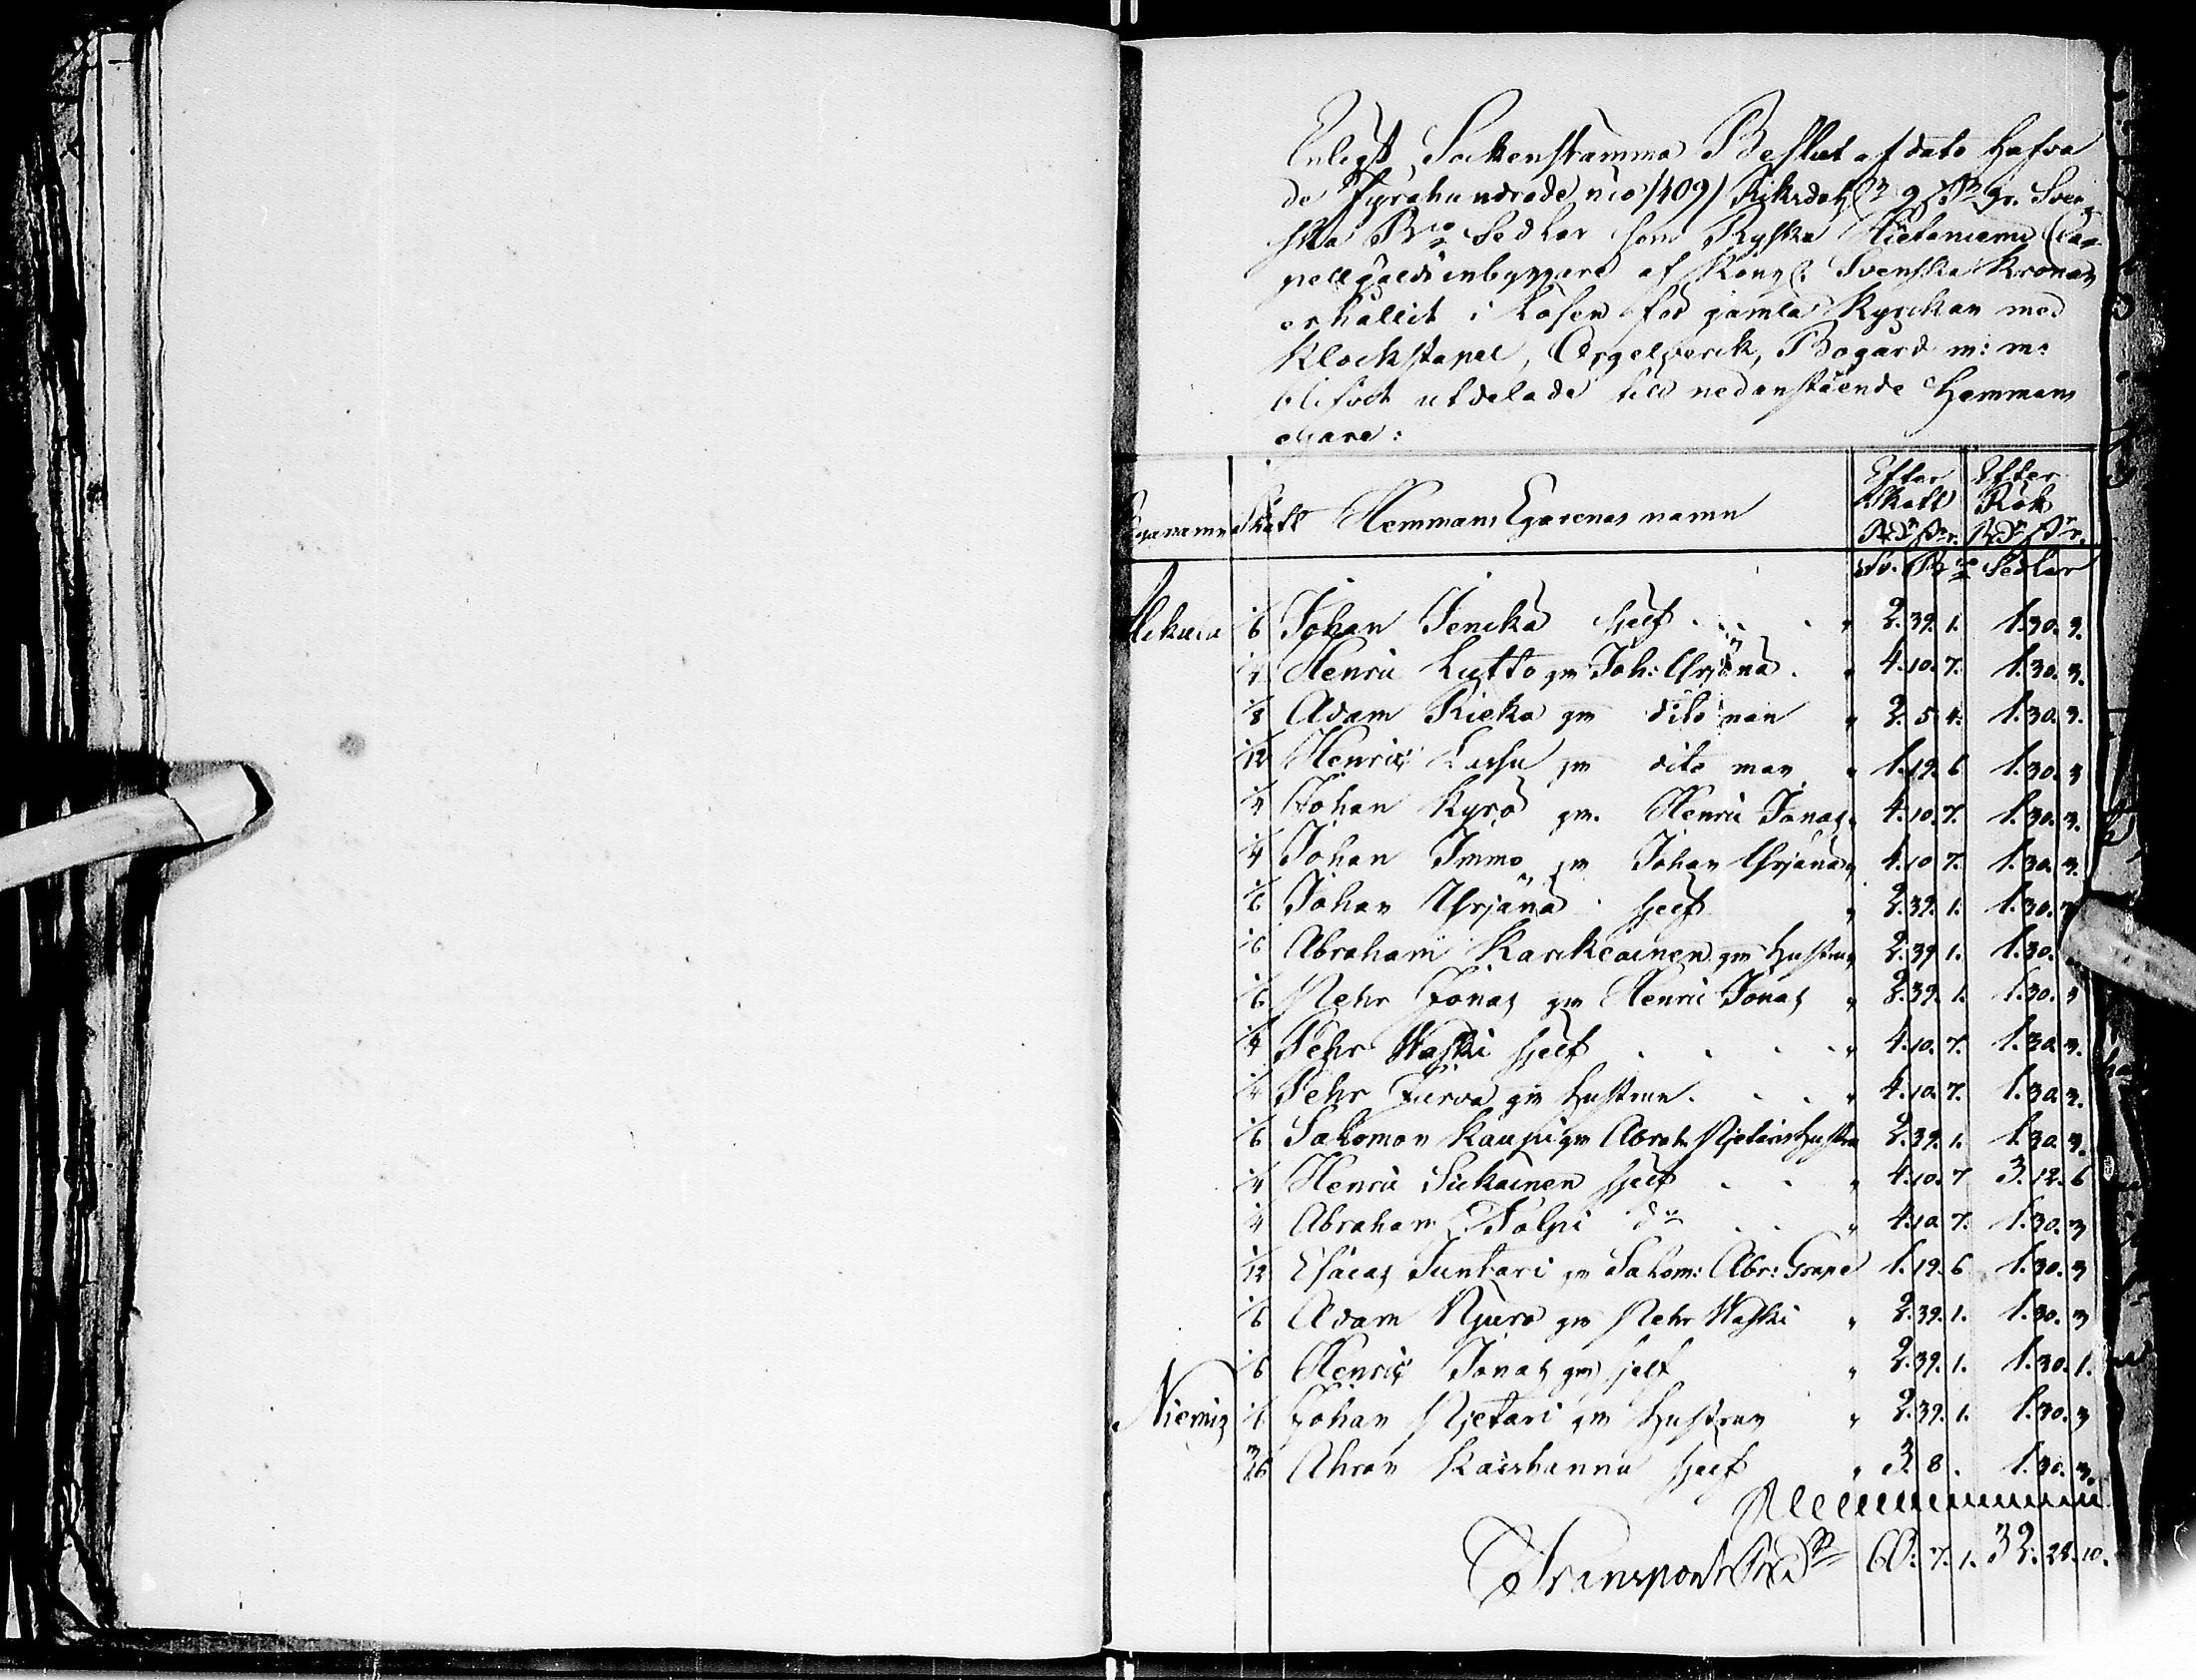 Enligt Sockenstämma Beslut af dato Hafva
de Fyrahundrade nio /409/ Riksdal 9 gr. Sven-
ska Bco Sedlar som Ryska Hietaniemi Ca-
pellgäldsinbyggare af Kongl. Svenska Kronan
erhållit i Lösen för gamla Kyrckan med
Klockstapel, Orgelverck, Bogård m: m:
blifvit utdelade till nedanstående Hemmans
egare:
Skatt Hemmans Egarenas namn Efter Skatt Efter Rök
Rd s r. Rd s r.
Sv. Bco Sedlar
1/6 Johan Jencka sjelf 2. 39. 1. 1. 30. 3.
1/4 Henric Lutto gm Joh: Yrjänä 4. 10. 7. 1. 30. 3.
1/8 Adam Rieka gm dito man 2. 5. 4. 1. 30. 3.
1/12 Henric Lassu gm dito man 1. 19. 6 1. 30. 3
1/4 Johan Kyrö gm. Henric Jonas 4. 10. 7. 1. 30. 3.
1/4 Johan Immo gm Johan Yrjänä 4. 10 7. 1. 30. 3.
1/6 Johan Yrjänä sjelf 2. 39. 1. 1. 30.
1/6 Abraham Karckeainen gm Hustrun 2. 39 1. 1. 30.
1/6 Pehr Jonas gm Henric Jonas 2. 39. 1. 1. 30. 3
1/4 Pehr Waski sjelf 4. 10. 7. 1. 30. 3.
1/4 Pehr Jurva gm Hustrun 4. 10. 7. 1. 30. 3.
1/6 Salomon Kauppi gm Abrah. Pjetaris Hustru 2. 39. 1. 1. 30. 3.
1/4 Henric Siekainen sjelf 4. 10. 7 3. 12. 6
1/4 Abraham Tolpi do 4. 10. 7. 1. 30. 3
1/12 Esaias Juntari gm Salom: Abr: Grape 1. 19. 6 1. 30. 3
1/6 Adam Njura gm Pehr Waski 2. 39. 1. 1. 30. 3
1/6 Henric Jonas gm sjelf 2. 39. 1. 1. 30. 1.
Niemis 1/6 Johan Pjetari gm Hustrun 2. 39. 1. 1. 30. 3
Ahron Kaishannu sjelf 3. 8. 1. 30. 3.
Transport Rd 60. 7. 1. 32. 22. 10.